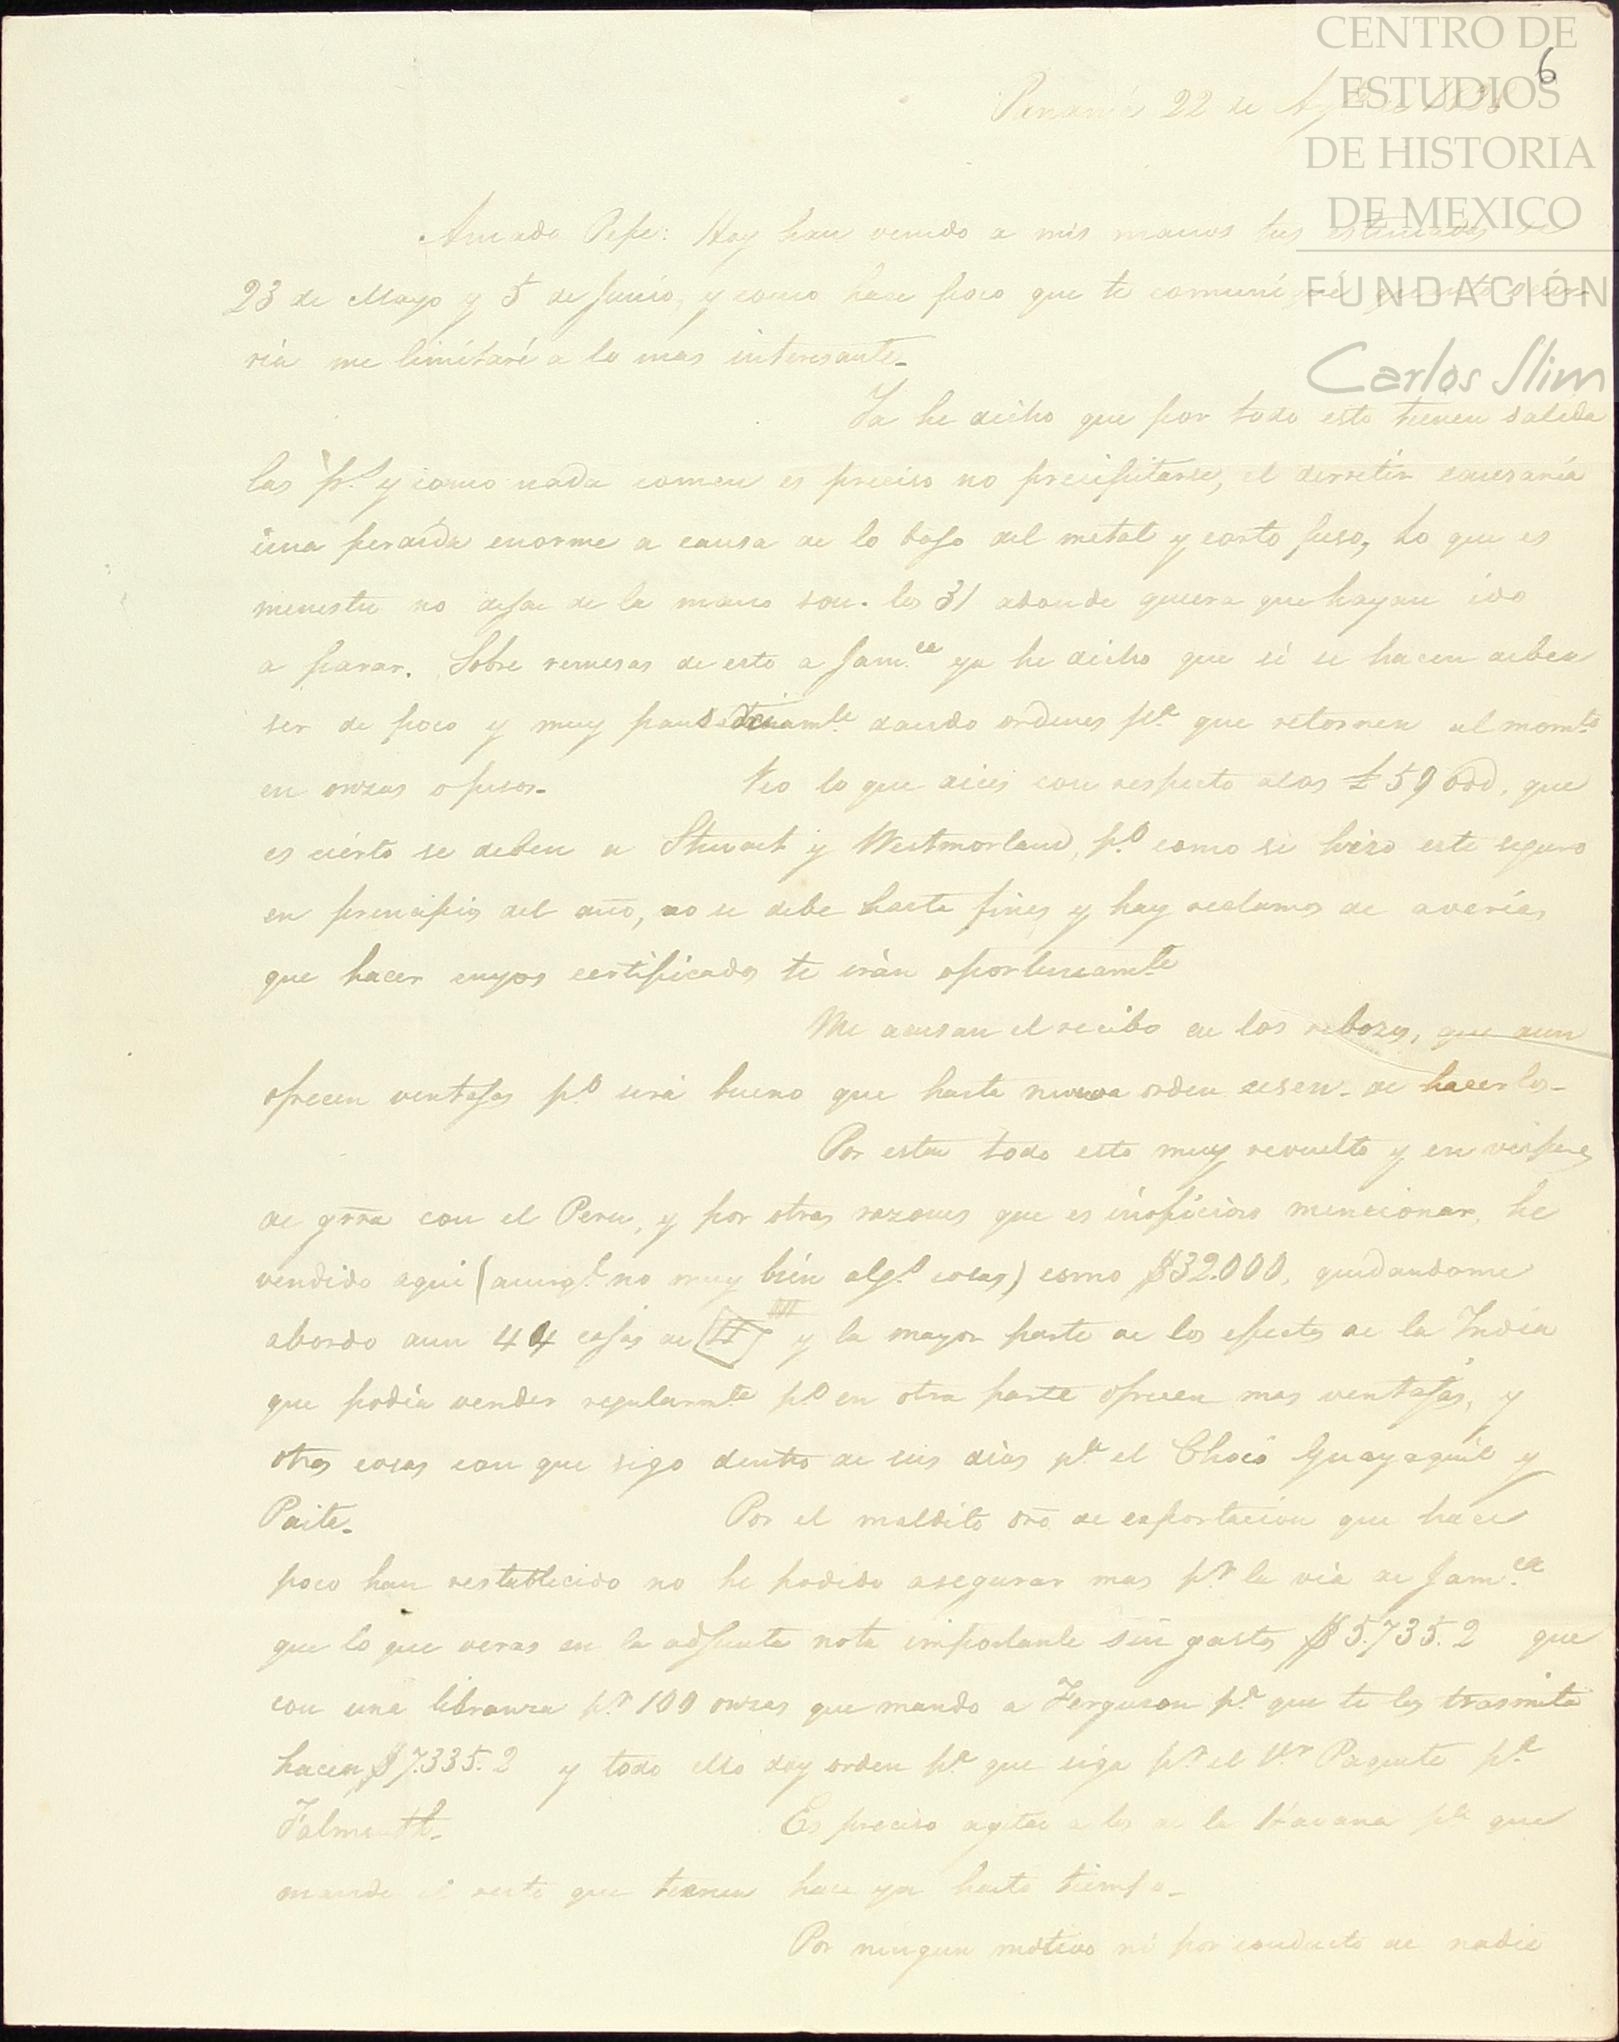 CENTRO DE
ESTUDIOS
DE HISTORIA
DE MEXICO
FUNDACIÓN
Carlos Slim
6
Panamá 22 de
Amado Pepe: Hoy han venido a mis manos tus estimadas de
23 de Mayo y 5 de Junio, y como hace poco que te comuniqué quanto ocur-
ria me limitaré a lo mas interesante_
Ya he dicho que por todo esto tienen salida
las p.s y como nada comen es preciso no precipitarse, el derretir causaría
una perdida enorme a causa de lo bajo del metal y corto peso, Lo que es
menester no dejar de la mano son los 31 adonde quiera que hayan ido
a parar. Sobre remesas de esto a Jam.ca ya he dicho que si se hacen deben
ser de poco y muy dando ordenes p.a que retornen al mom.to
en onzas o pesos_ Veo lo que dices con respecto a las £ 59 que
es cierto se deben a Stuart y Westmorland, p.o como se hizo este seguro
en principios del año, no se debe hasta fines y hay reclamos de averías
que hacer cuyos certificados te irán oportunam.te
Me acusan el recibo de los rebozos, que aun
ofrecen ventajas p.o será bueno que hasta nueva orden cesen de hacerlos_
Por estar todo esto muy revuelto y en visperas
de grra con el Peru, y por otras razones que es inoficioso mencionar, he
vendido aqui (aunq.e no muy bién alg.s cosas) como $32.000, quedandome
abordo aun 44 cajas de y la mayor parte de los efectos de la India
que podía vender regularm.te p.o en otra parte ofrecen mas ventajas, y
otras cosas con que sigo dentro de seis días p.a el Chocó Guayaquil y
Paita_ Por el maldito dro de exportacion que hace
poco han restablecido no he podido asegurar mas p.r la vía de Jam.ca
que lo que veras en la adjunta nota importante sin gastos $5.735.2 que
con una libranza p.r 100 onzas que mando a Ferguson p.a que te las trasmita
hacen $7.335.2 y todo ello doy orden p.a que siga p.r el 1.er Paquete p.a
Falmouth_ Es preciso agitar a los de la Havana p.a que
mande el resto que tienen hace ya harto tiempo_
Por ningun motivo ni por conducto de nadie